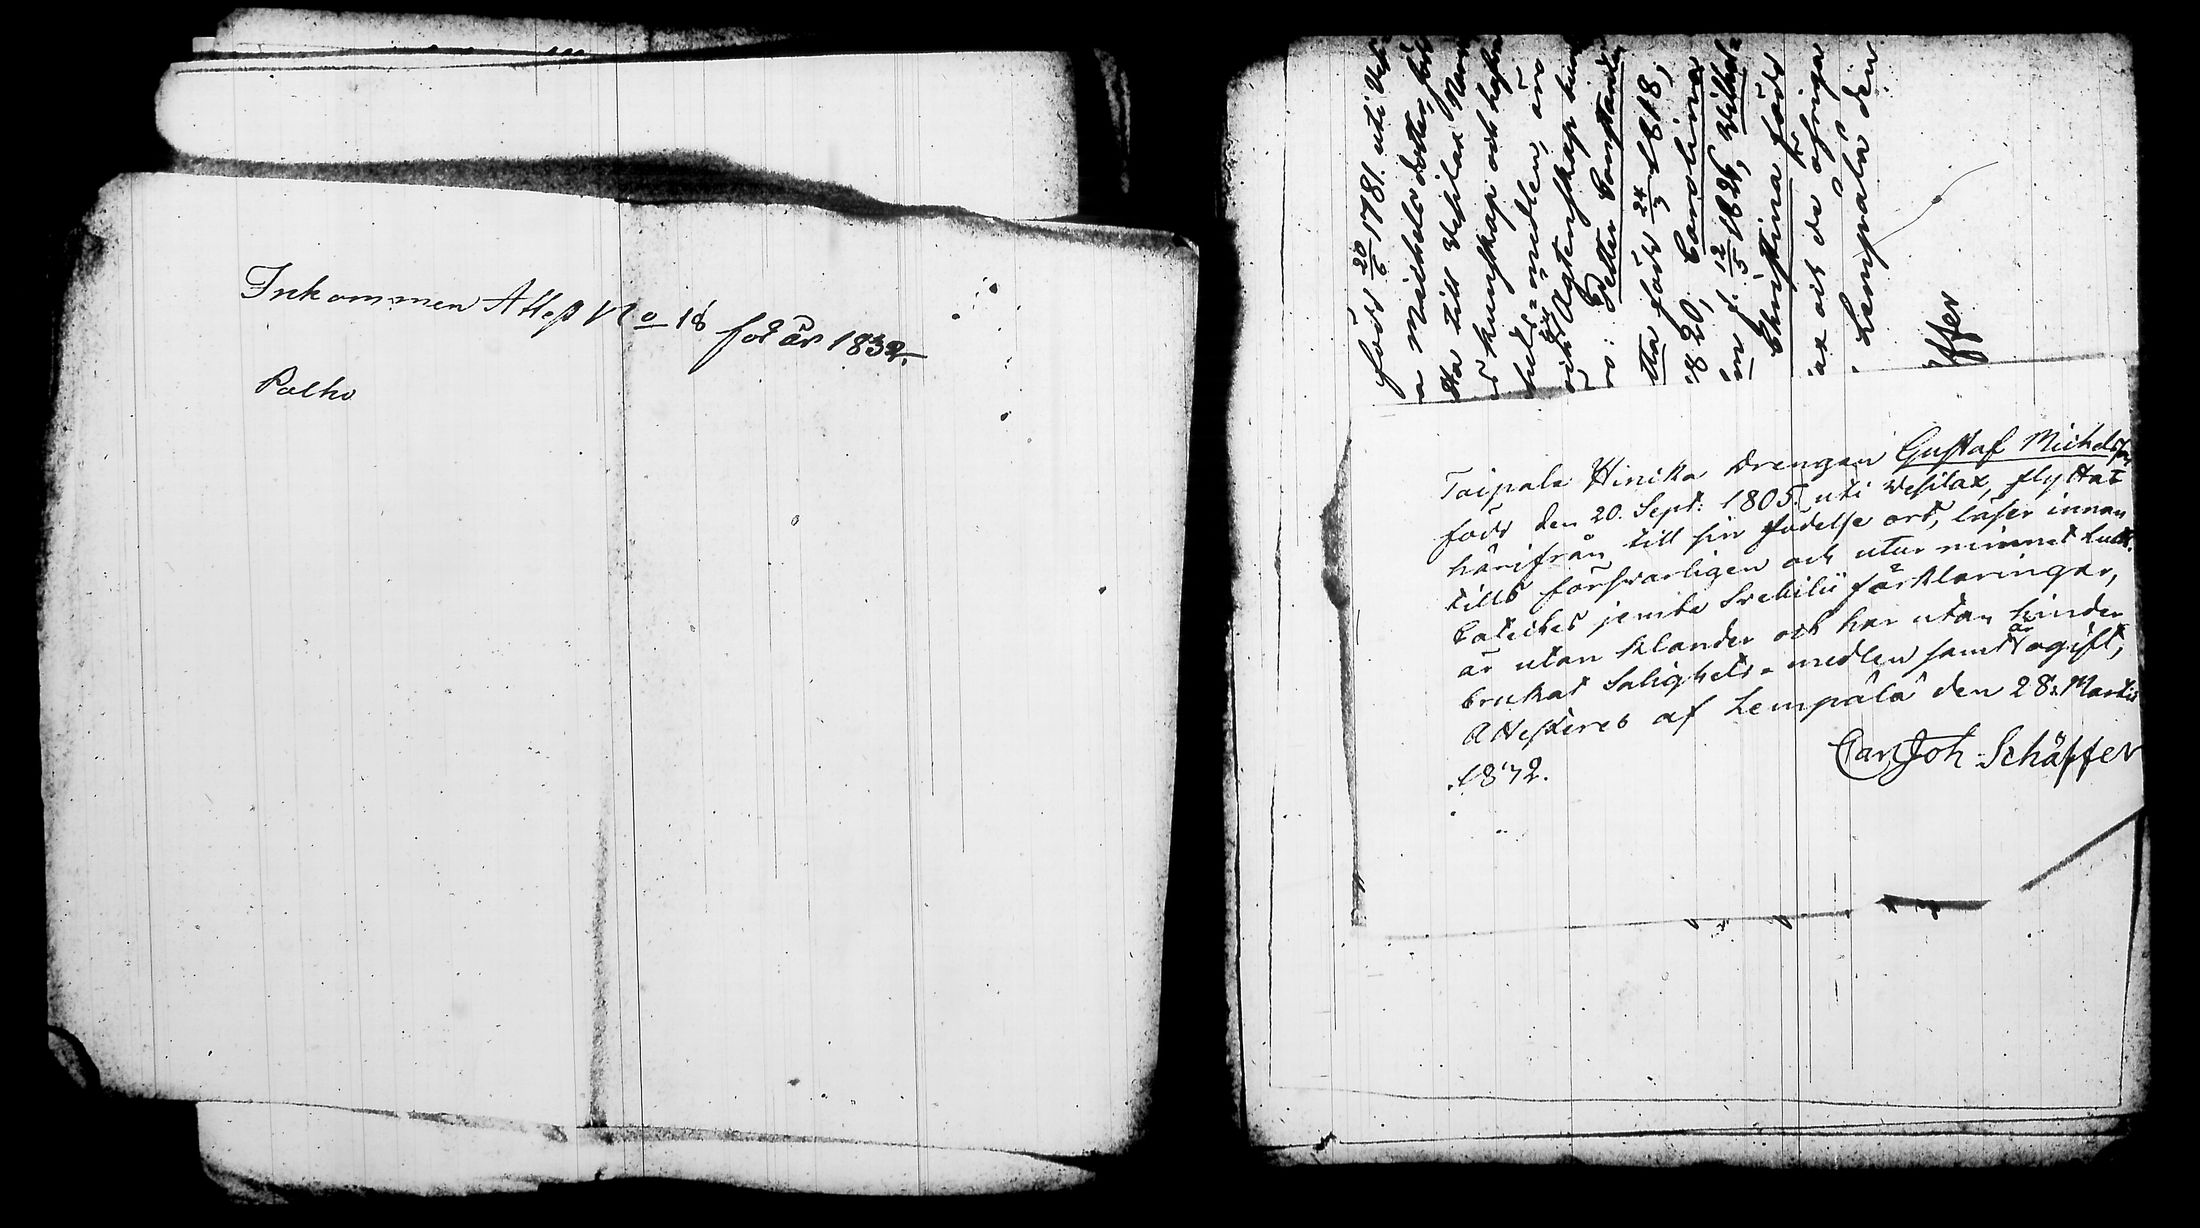 Inkommen Attest No 18 för år 1832.
Palho
födt 20/6 1781. uti Vesi
a Michelsdotter, född
tta till Vesilax
s kunskap och
hets-medlen, äro
och Ägtenskap
ro: Petter Constantin
tta född 24/9 1818,
1820, Carolina
in f. 12/5 1826, Wilhel
Christina född
ax och de öfriga
Lempälä den
äffer
Taipale Hinika Drengen Gustaf Michelsson
född den 20. Sept: 1805. uti Vesilax, flyttat
härifrån till sin födelse ort, läser innan
tills försvarligen och utur minnet Luth.
Cateches jemte Svebilii förklaringar,
är utan klander och har utan hinder
brukat Salighets-medlen samt är ogift,
Attesteres af Lempälä den 28. Martii
1832.
Carl Joh Schäffer